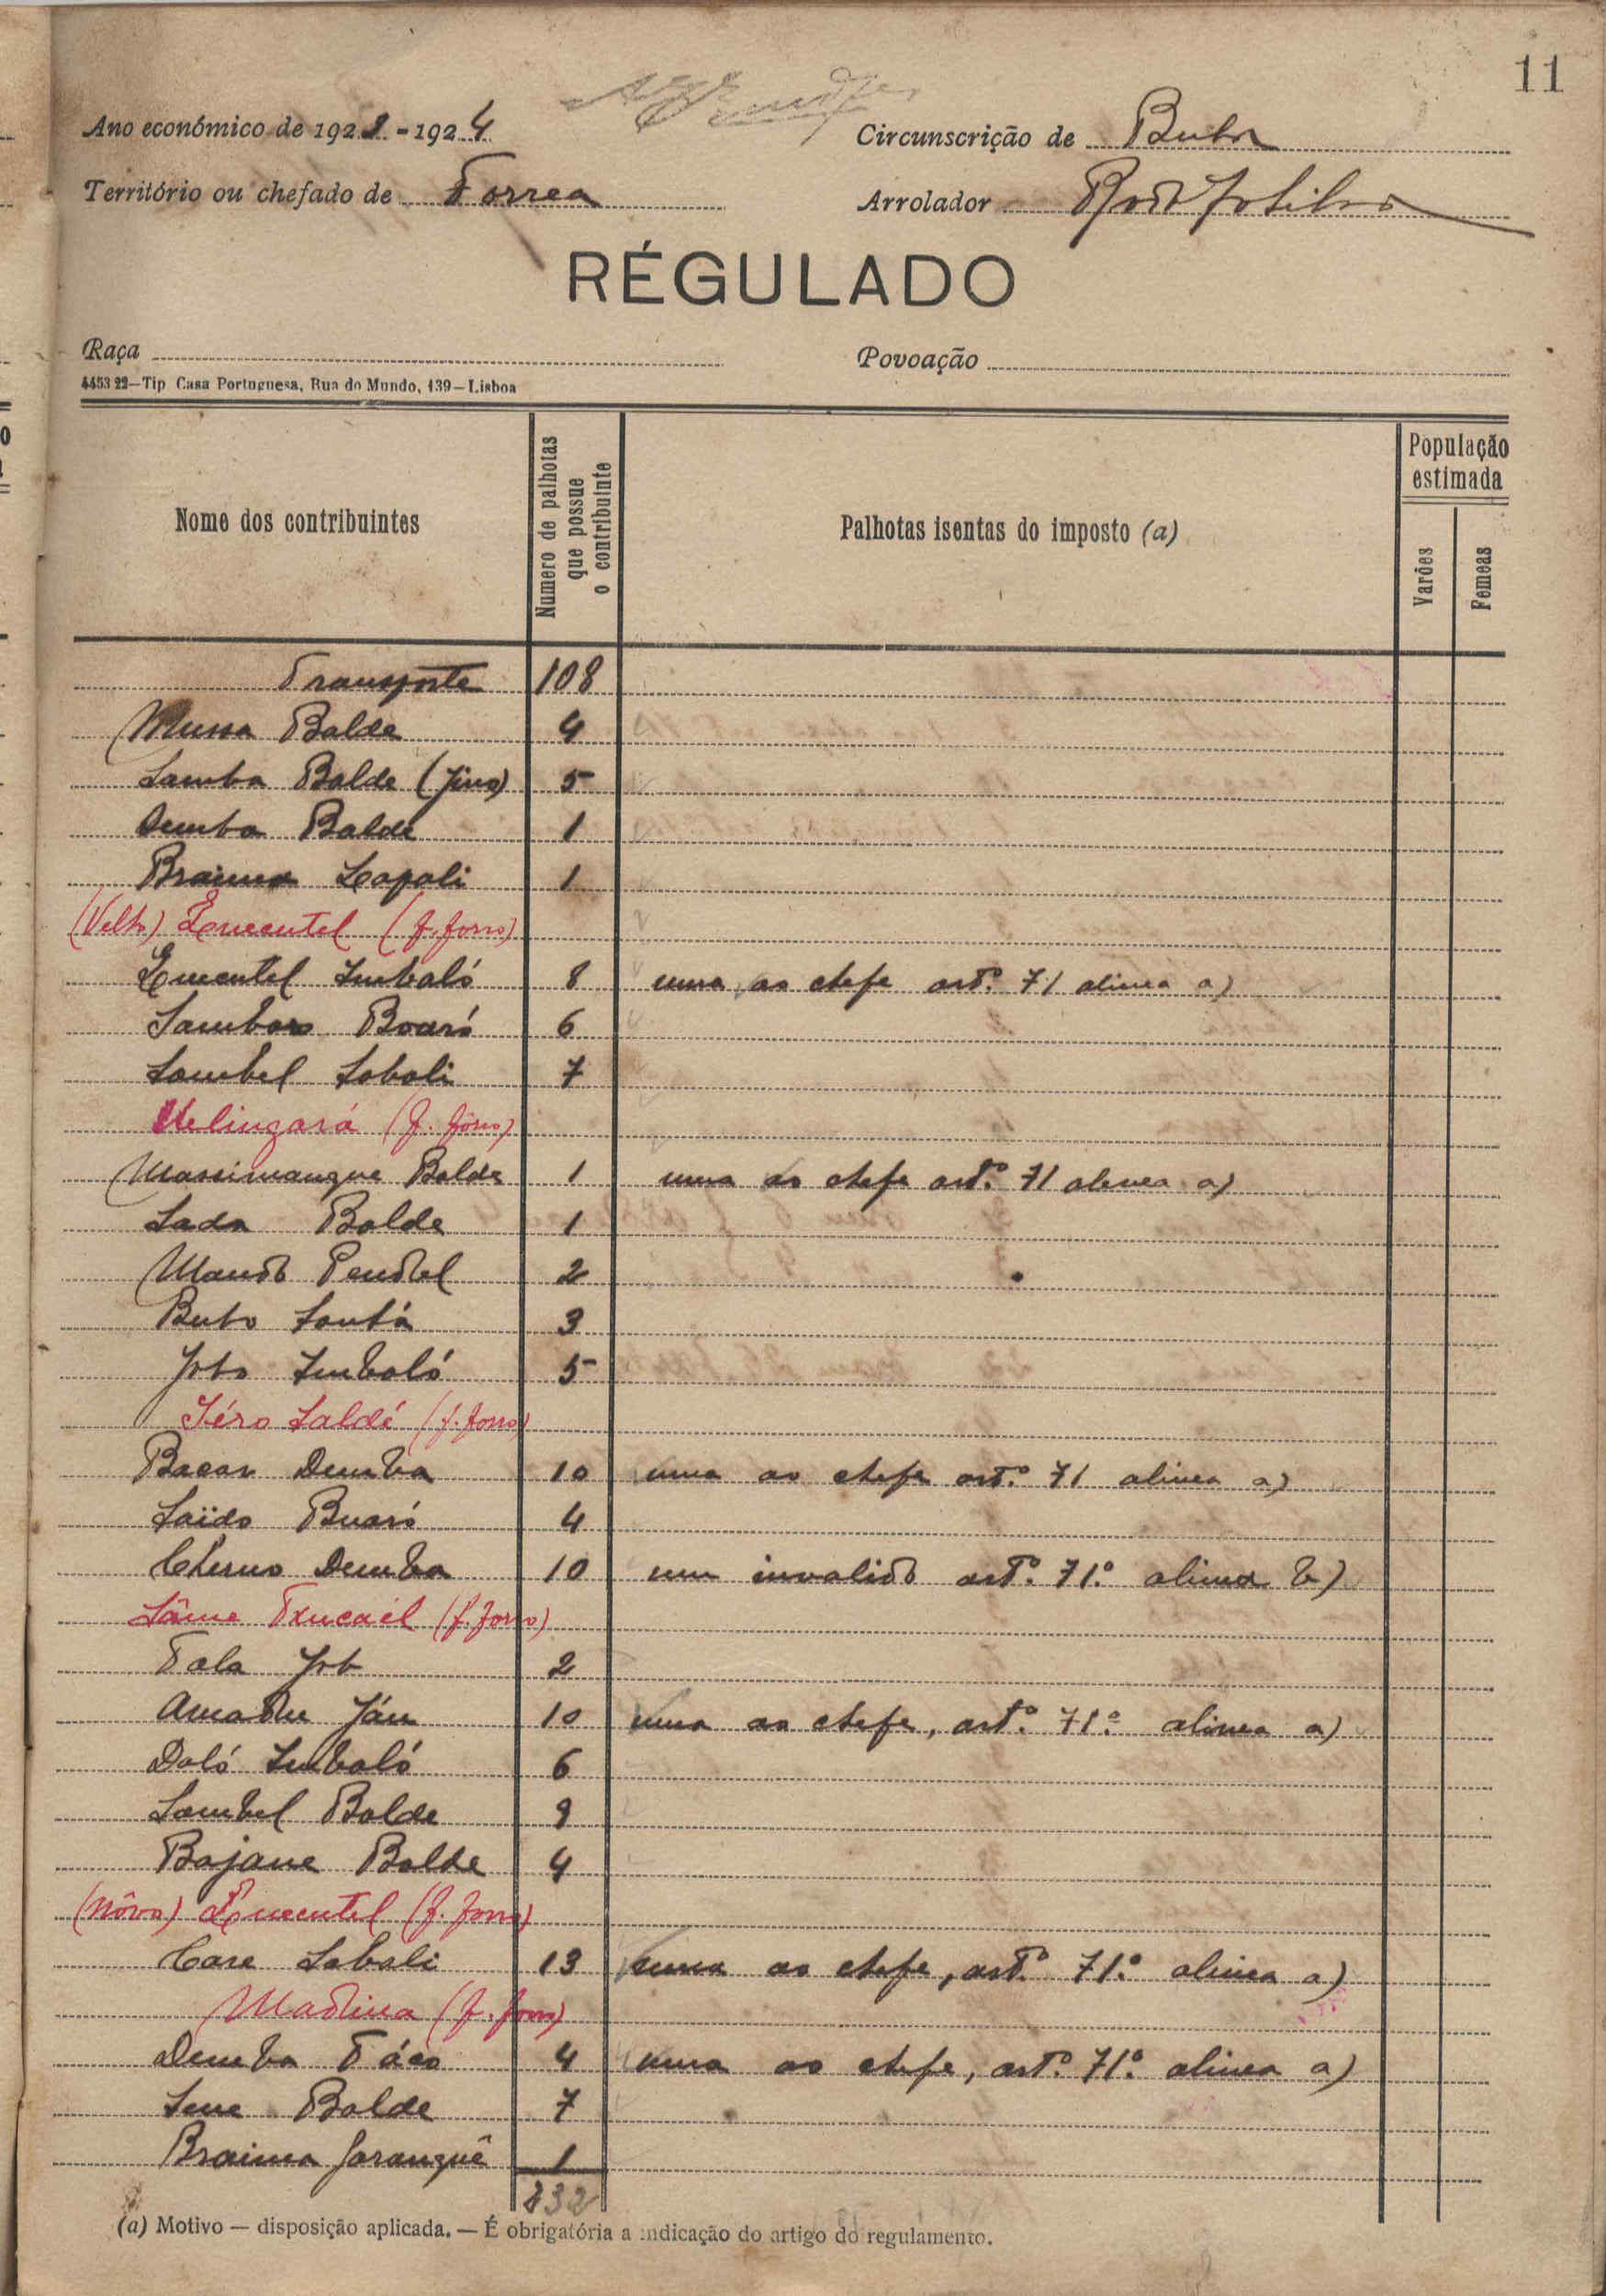 11
Ano económico de 1923-1924
Circunscrição de Buba
Território ou chefado de Forrea
Arrolador
RÉGULADO
Raça
Povoação
4453 22—Tip Casa Portuguesa, Rua do Mundo, 139—Lisboa
Nome dos contribuintes
Numero de palhotas que possue o contribuinte
Palhotas isentas do imposto (a)
População estimada
Varões
Femeas
Transporte 108
Mussa Balde 4
Samba Balde 5
Demba Balde 1
Braima 1
(Velho) (f. forro)
Embaló 8 uma ao chefe artº. 71 alinea a)
Boaró 6
Sambel Sabali 7
Velingará (f. forro)
Balde 1 uma ao chefe artº. 71 alinea a)
Sada Balde 1
2
3
Embaló 5
(f. forro)
Bacar Demba 10 uma ao chefe artº. 71 alinea a)
Saïdo Buaró 4
Cherno Demba 10 um invalido artº. 71.º alinea b)
(f. forro)
2
Amadu 10 uma ao chefe, artº. 71.º alinea a)
Embaló 6
Sambel Balde 9
Bajane Balde 4
(Nôvo) (f. forro)
Sabali 13 uma ao chefe, artº. 71.º alinea a)
Madina (f. forro)
Demba 4 uma ao chefe, artº. 71.º alinea a)
Balde 7
Braima 1
232
(a) Motivo — disposição aplicada. — É obrigatória a indicação do artigo do regulamento.